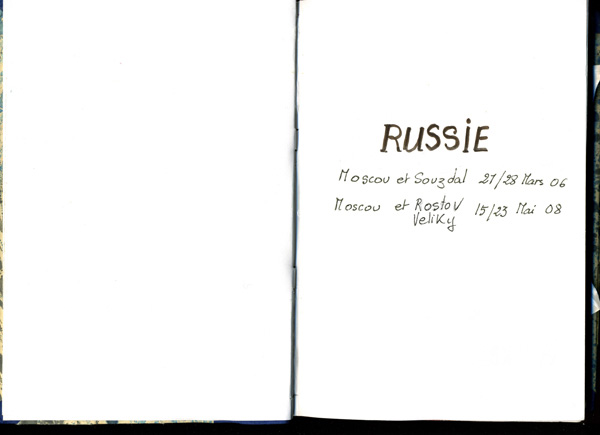 RUSSIE
Moscou et Souzdal 21/28 Mars 06
Moscou et Rostov 15/23 Mai 08
Veliky